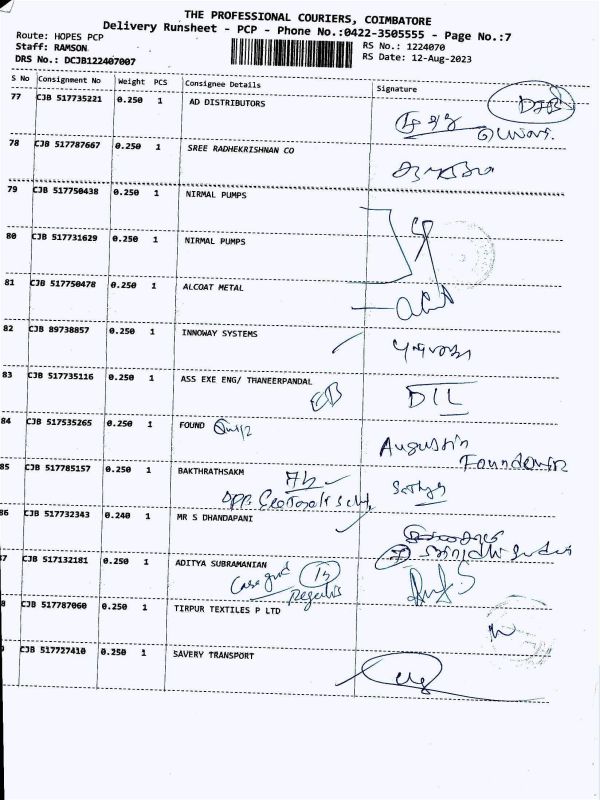 THE PROFESSIONAL COURIERS, COIMBATORE
Delivery Runsheet - PCP - Phone No.:0422-3505555 - Page No.:7
Route: HOPES PCP
Staff: RAMSON
DRS No.: DCJB122407007
RS No.: 1224070
RS Date: 12-Aug-2023
S No Consignment No Weight PCS Consignee Details Signature
77 CJB 517735221 0.250 1 AD DISTRIBUTORS
78 CJB 517787667 0.250 1 SREE RADHEKRISHNAN CO
79 CJB 517750438 0.250 1 NIRMAL PUMPS
80 CJB 517731629 0.250 1 NIRMAL PUMPS
81 CJB 517750478 0.250 1 ALCOAT METAL
82 CJB 89738857 0.250 1 INNOWAY SYSTEMS
83 CJB 517735116 0.250 1 ASS EXE ENG/ THANEERPANDAL
EB DIL
84 CJB 517535265 0.250 1 FOUND
Augustin
85 CJB 517785157 0.250 1 BAKTHRATHSAKM
86 CJB 517732343 0.240 1 MR S DHANDAPANI
7 CJB 517132181 0.250 1 ADITYA SUBRAMANIAN
8 CJB 517787060 0.250 1 TIRPUR TEXTILES P LTD
CJB 517727410 0.250 1 SAVERY TRANSPORT